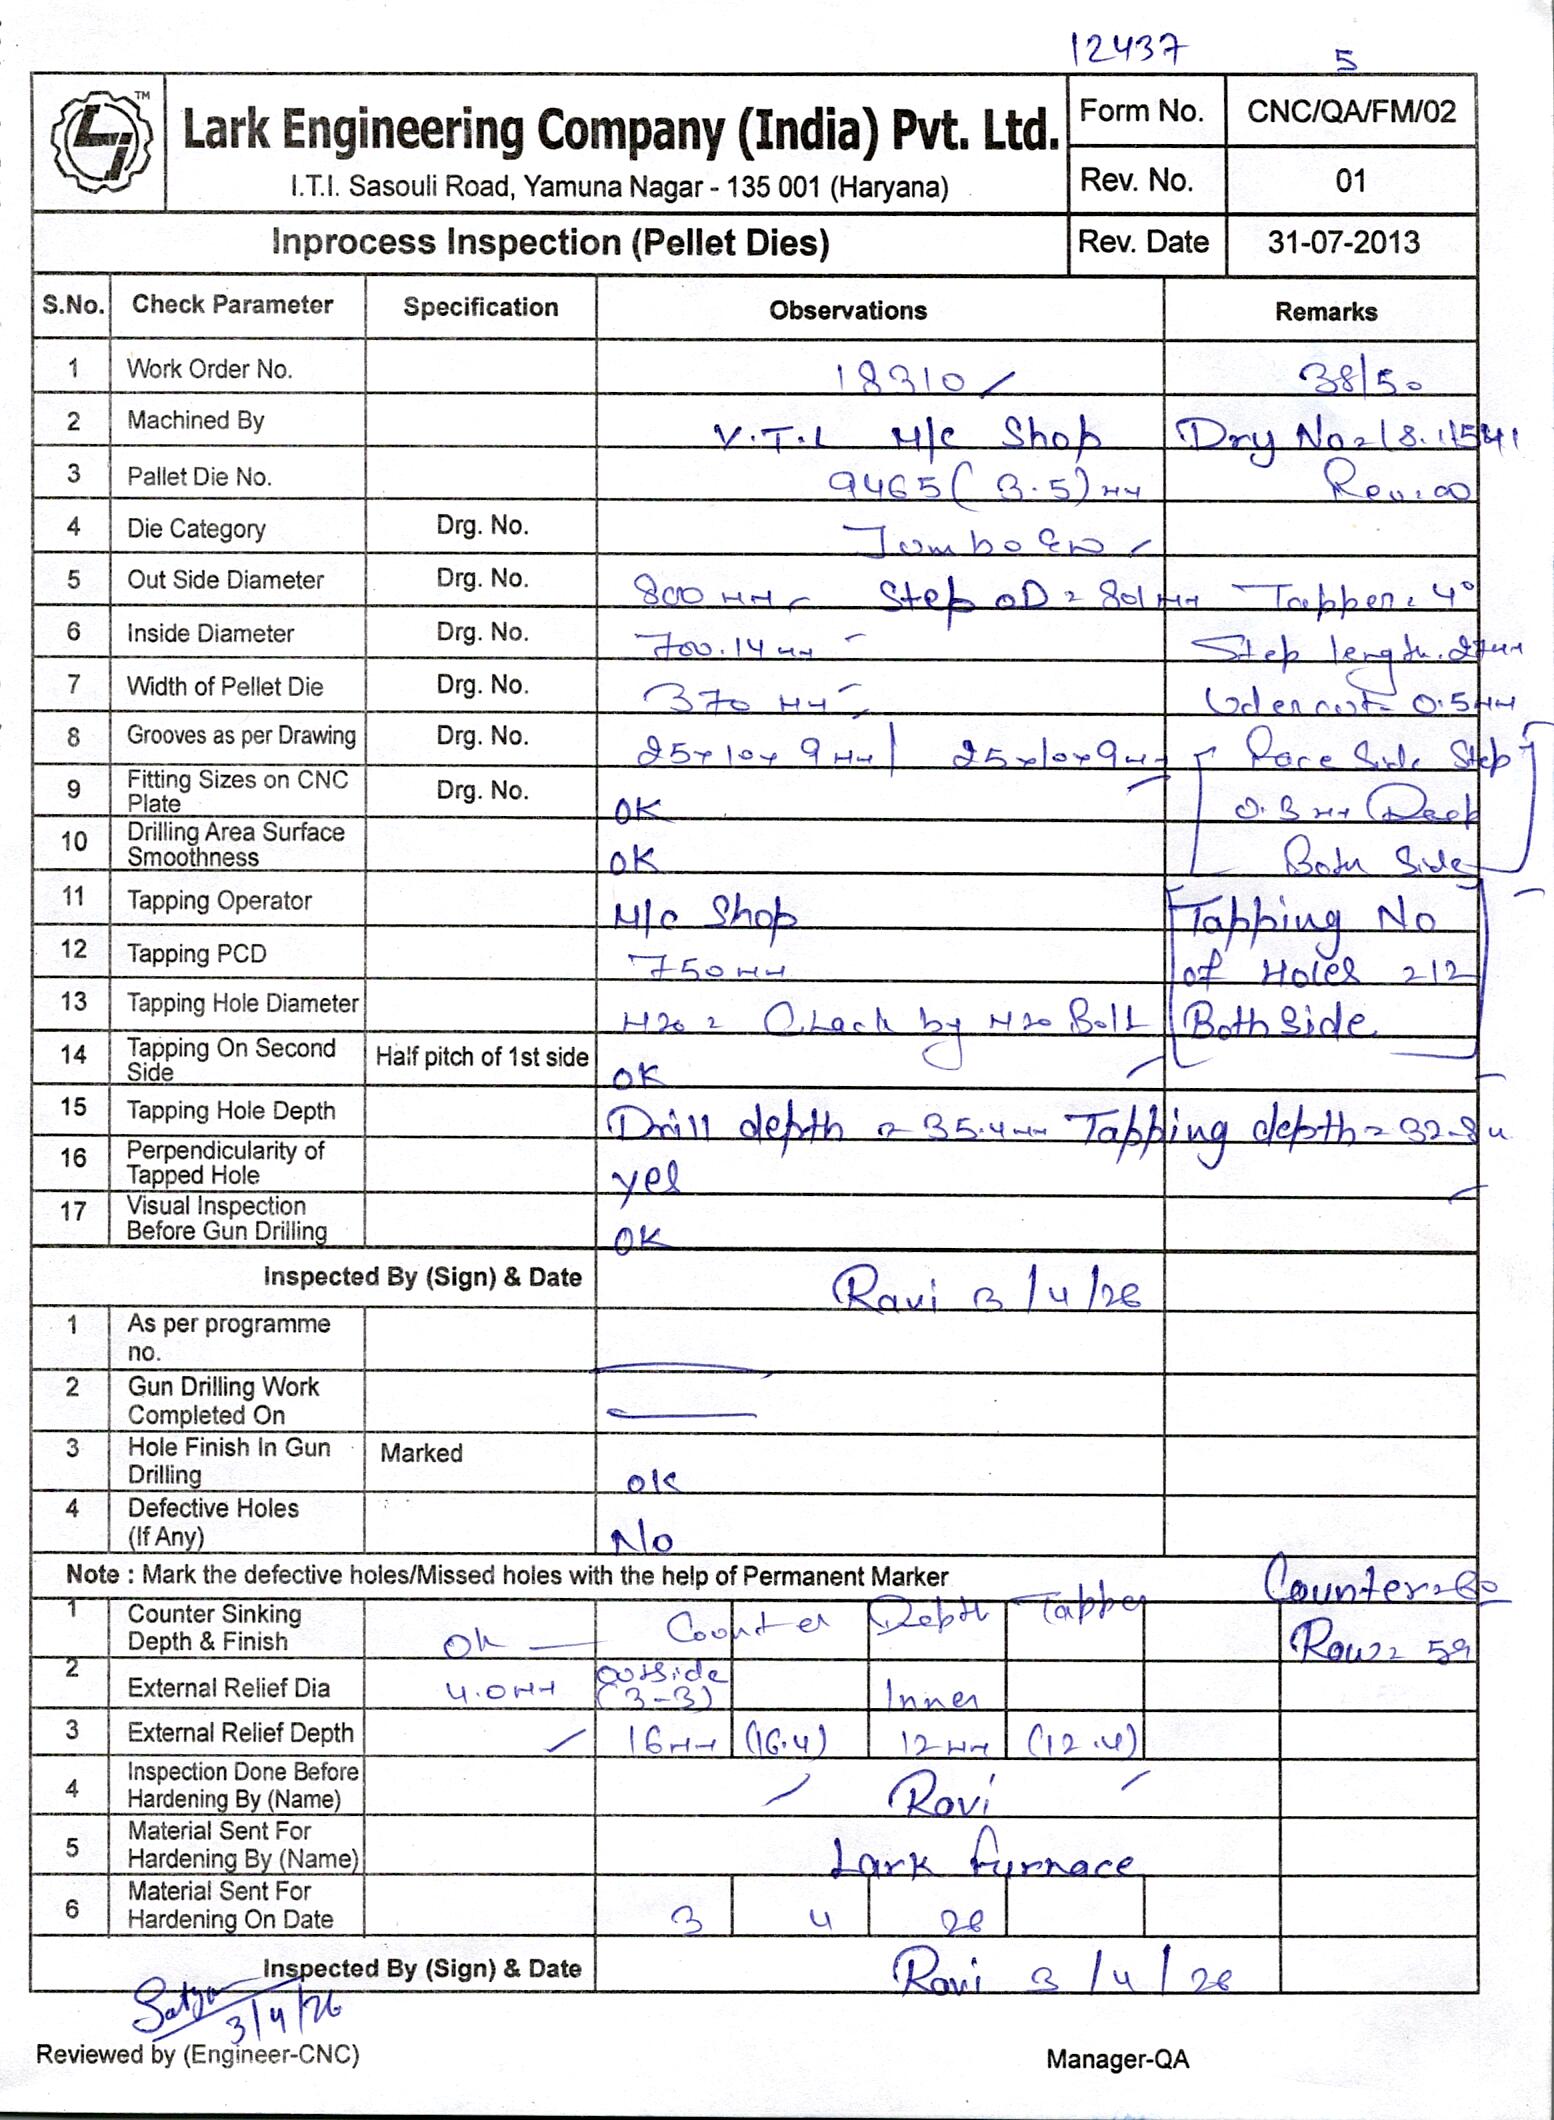 12437 5
TM
Lark Engineering Company (India) Pvt. Ltd.
I.T.I. Sasouli Road, Yamuna Nagar - 135 001 (Haryana)
Form No. CNC/QA/FM/02
Rev. No. 01
Inprocess Inspection (Pellet Dies) Rev. Date 31-07-2013
S.No. Check Parameter Specification Observations Remarks
1 Work Order No. 18310 38/50
2 Machined By V.T.L M/c Shop
3 Pallet Die No. 9465 (3.5) mm Rev.00
4 Die Category Drg. No. Jumbo
5 Out Side Diameter Drg. No. 800 mm Step OD = 801 mm Tapper = 4°
6 Inside Diameter Drg. No. 700.14 mm Step length = 27mm
7 Width of Pellet Die Drg. No. 370 mm Udercut = 0.5mm
8 Grooves as per Drawing Drg. No. 25x10x9mm / 25x10x9mm Race Side Step
9 Fitting Sizes on CNC Plate Drg. No. OK 0.3 mm Deep
10 Drilling Area Surface Smoothness OK Both Side
11 Tapping Operator M/c Shop Tapping No
12 Tapping PCD 750mm of Holes = 12
13 Tapping Hole Diameter M20 = Check by M20 Bolt Both Side
14 Tapping On Second Side Half pitch of 1st side OK
15 Tapping Hole Depth Drill depth = 35.4mm Tapping depth = 32.8
16 Perpendicularity of Tapped Hole yes
17 Visual Inspection Before Gun Drilling OK
Inspected By (Sign) & Date Ravi 3/4/26
1 As per programme no.
2 Gun Drilling Work Completed On
3 Hole Finish In Gun Drilling Marked OK
4 Defective Holes (If Any) No
Note : Mark the defective holes/Missed holes with the help of Permanent Marker Counter = 60
1 Counter Sinking Depth & Finish OK Counter Depth Tapper Row = 59
2 External Relief Dia 4.0mm outside (3-3) Inner
3 External Relief Depth 16mm (16.4) 12mm (12.4)
4 Inspection Done Before Hardening By (Name) Ravi
5 Material Sent For Hardening By (Name) Lark furnace
6 Material Sent For Hardening On Date 3 4 26
Inspected By (Sign) & Date Ravi 3/4/26
3/4/26
Reviewed by (Engineer-CNC) Manager-QA